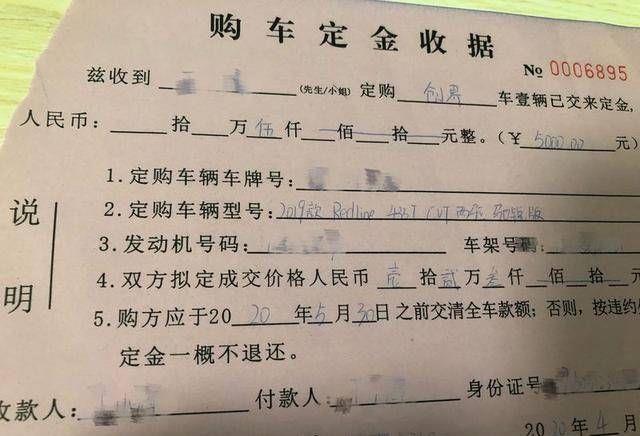 购车定金收据
No 0006895
兹收到 (先生/小姐) 定购 创界 车壹辆已交来定金,
人民币: 拾 万 伍 仟 佰 拾 元整。(¥ 5000.00 元)
说明
1.定购车辆车牌号:
2.定购车辆型号: 2019款 Redline CVT 版
3.发动机号码: 车架号码
4.双方拟定成交价格人民币 壹 拾 贰 万 叁 仟 佰 拾
5.购方应于20 20 年 5 月 30 日之前交清全车款额;否则,按违约
定金一概不退还。
收款人: 付款人: 身份证号
2020年4月